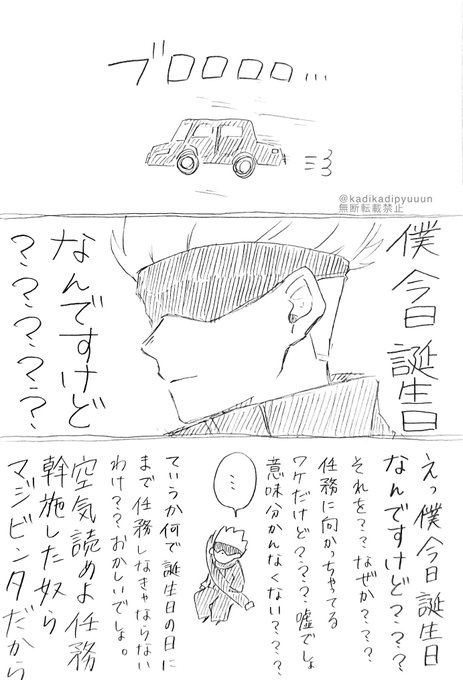 ブロロロロ…
@kadikadipyuuun
無断転載禁止
僕今日誕生日
なんですけど
？？？？？？
えっ僕今日誕生日
なんですけど？？？？
それを？？なぜか？？？
任務に向かっちゃってる
ワケだけど？？？嘘でしょ
意味分かんなくない？？？
…
ていうか何で誕生日の日に
まで任務しなきゃならない
わけ？？？おかしいでしょ。
空気読めよ任務
斡旋した奴ら
マジビンタだから